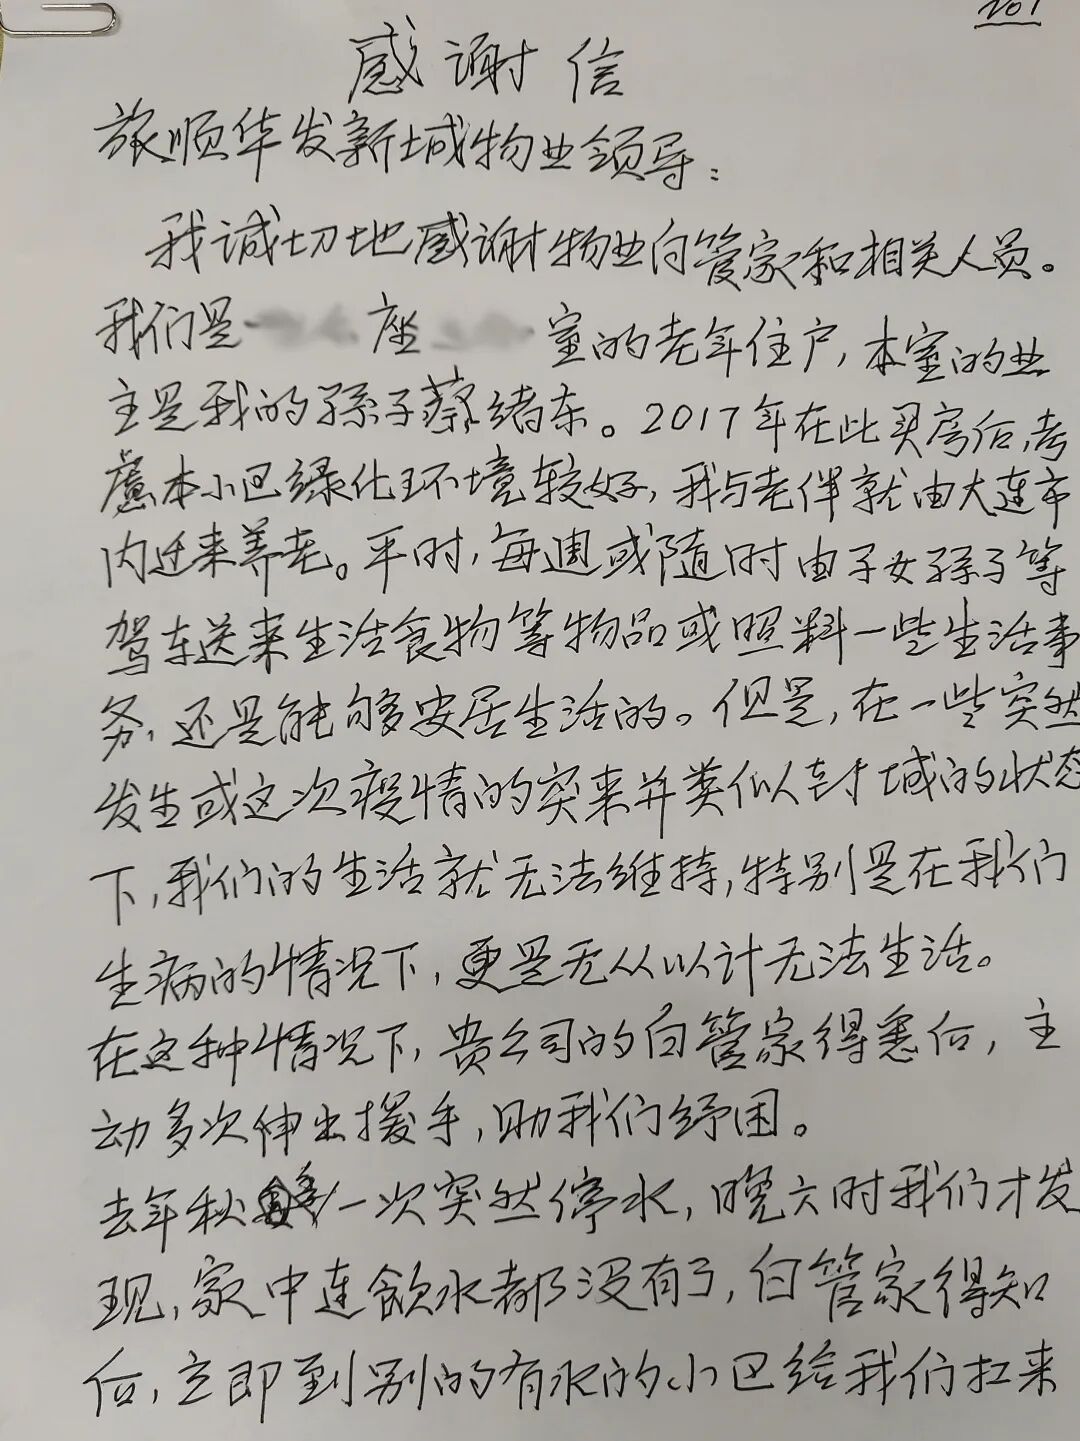 No1
感谢信
旅顺华发新城物业领导：
我诚切地感谢物业白管家和相关人员。
我们是 座 室的老年住户，本室的业
主是我的孫子蔡绪东。2017年在此买房后，考
虑本小巴绿化环境较好，我与老伴就由大连市
内迁来养老。平时，每週或随时由子女孫子等
驾车送来生活食物等物品或照料一些生活事
务，还是能够安居生活的。但是，在一些突然
发生或这次疫情的突来并类似封城的状态
下，我们的生活就无法维持，特别是在我们
生病的情况下，更是无从以计无法生活。
在这种情况下，贵公司的白管家得悉后，主
动多次伸出援手，助我们纾困。
去年秋 一次突然停水，晚六时我们才发
现，家中连飲水都没有了，白管家得知
后，立即到别的有水的小巴给我们扛来